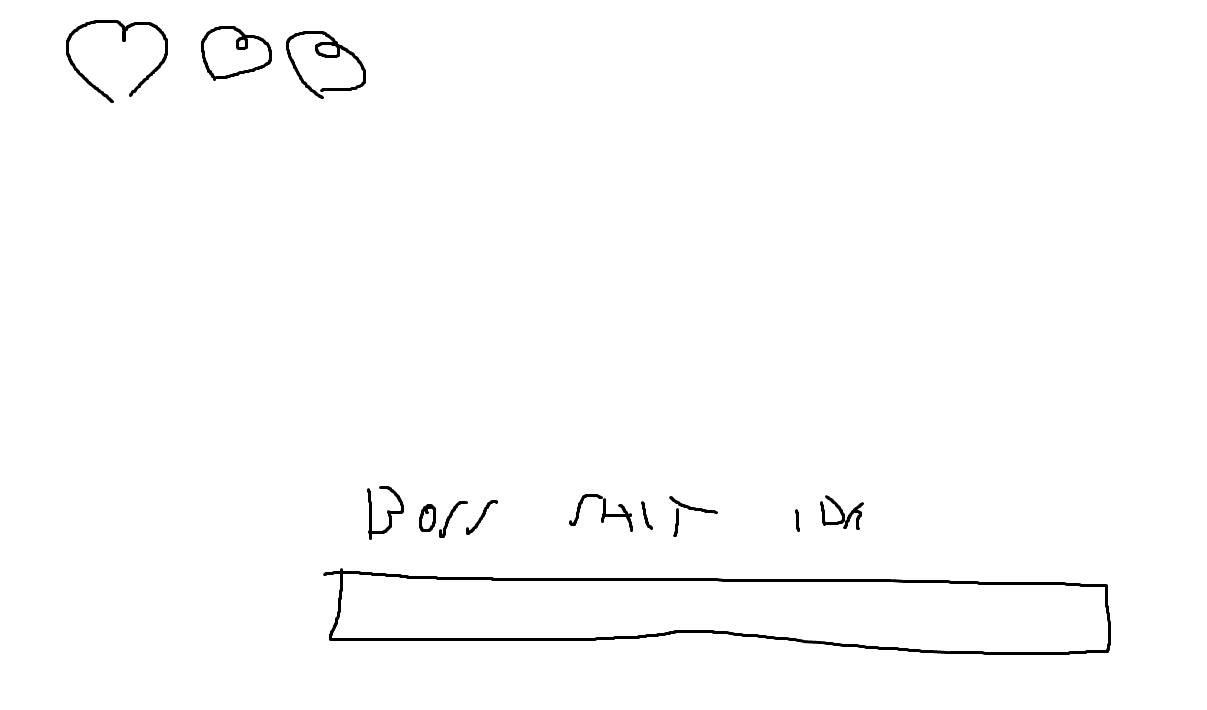 BOSS SHIT IDK